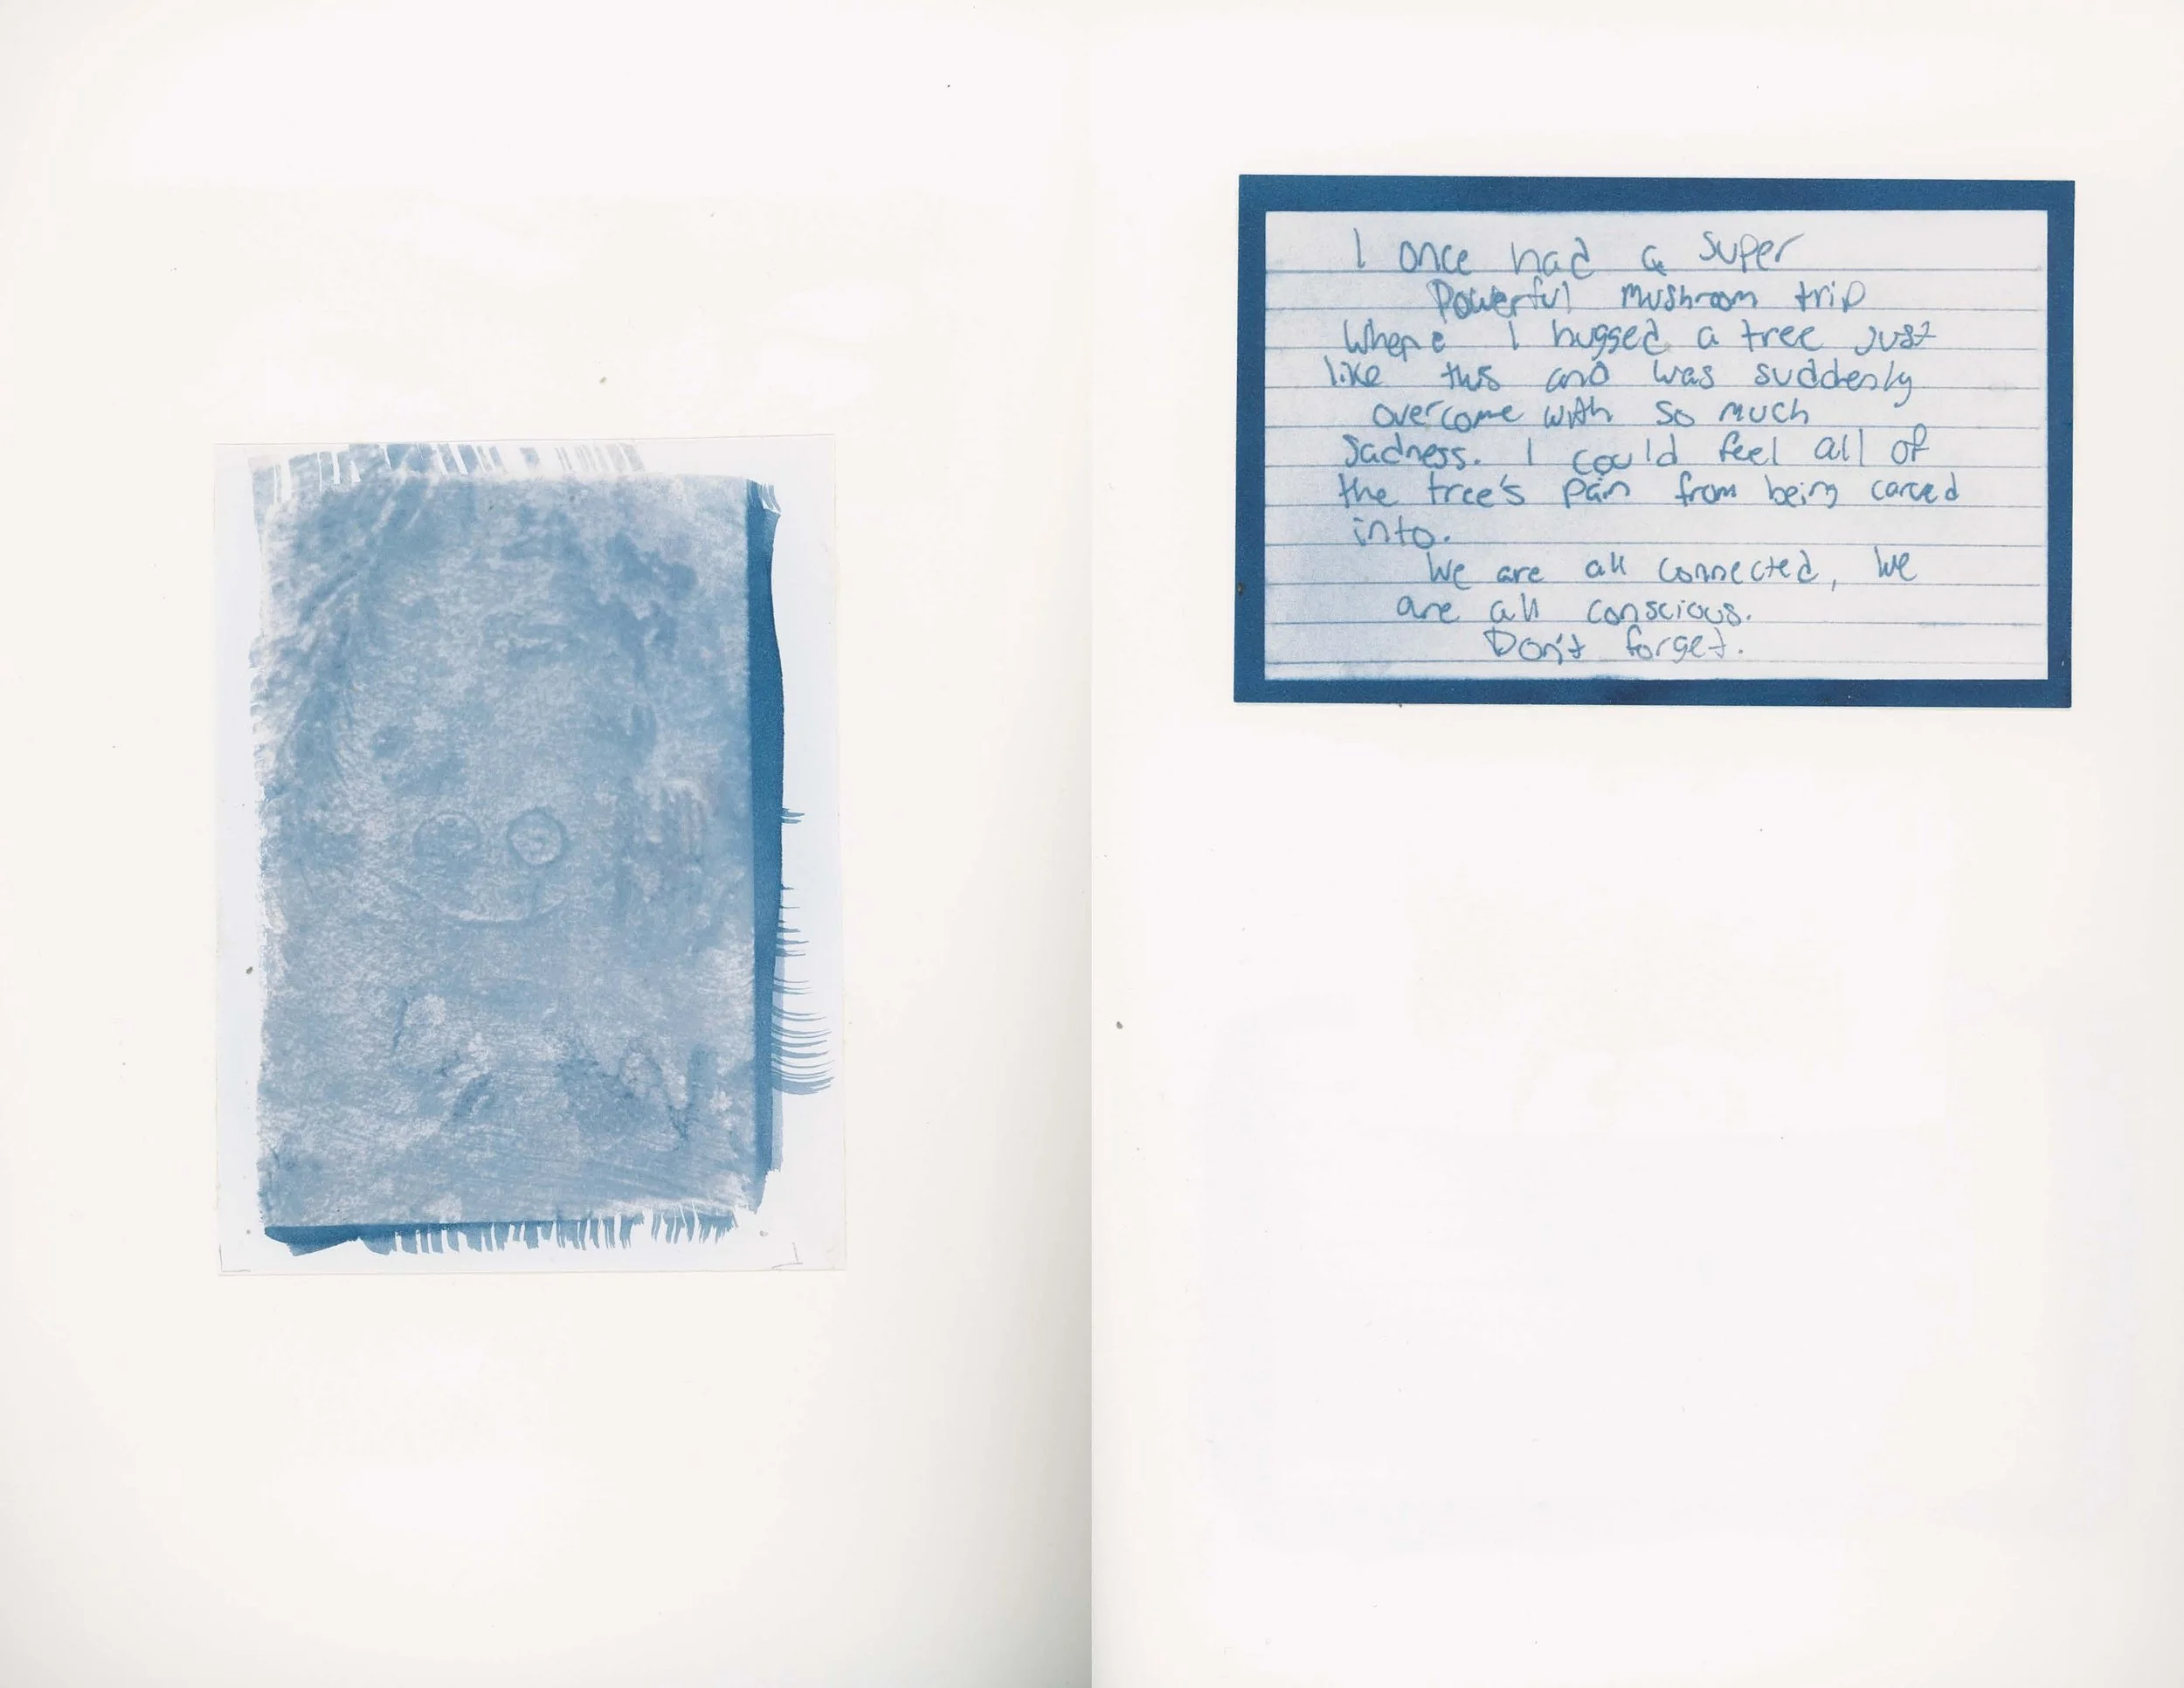 I once had a super
Powerful mushroom trip
Where I hugged a tree just
like this and was suddenly
overcome with so much
sadness. I could feel all of
the tree's pain from being carved
into.
We are all connected, we
are all conscious.
Don't forget.